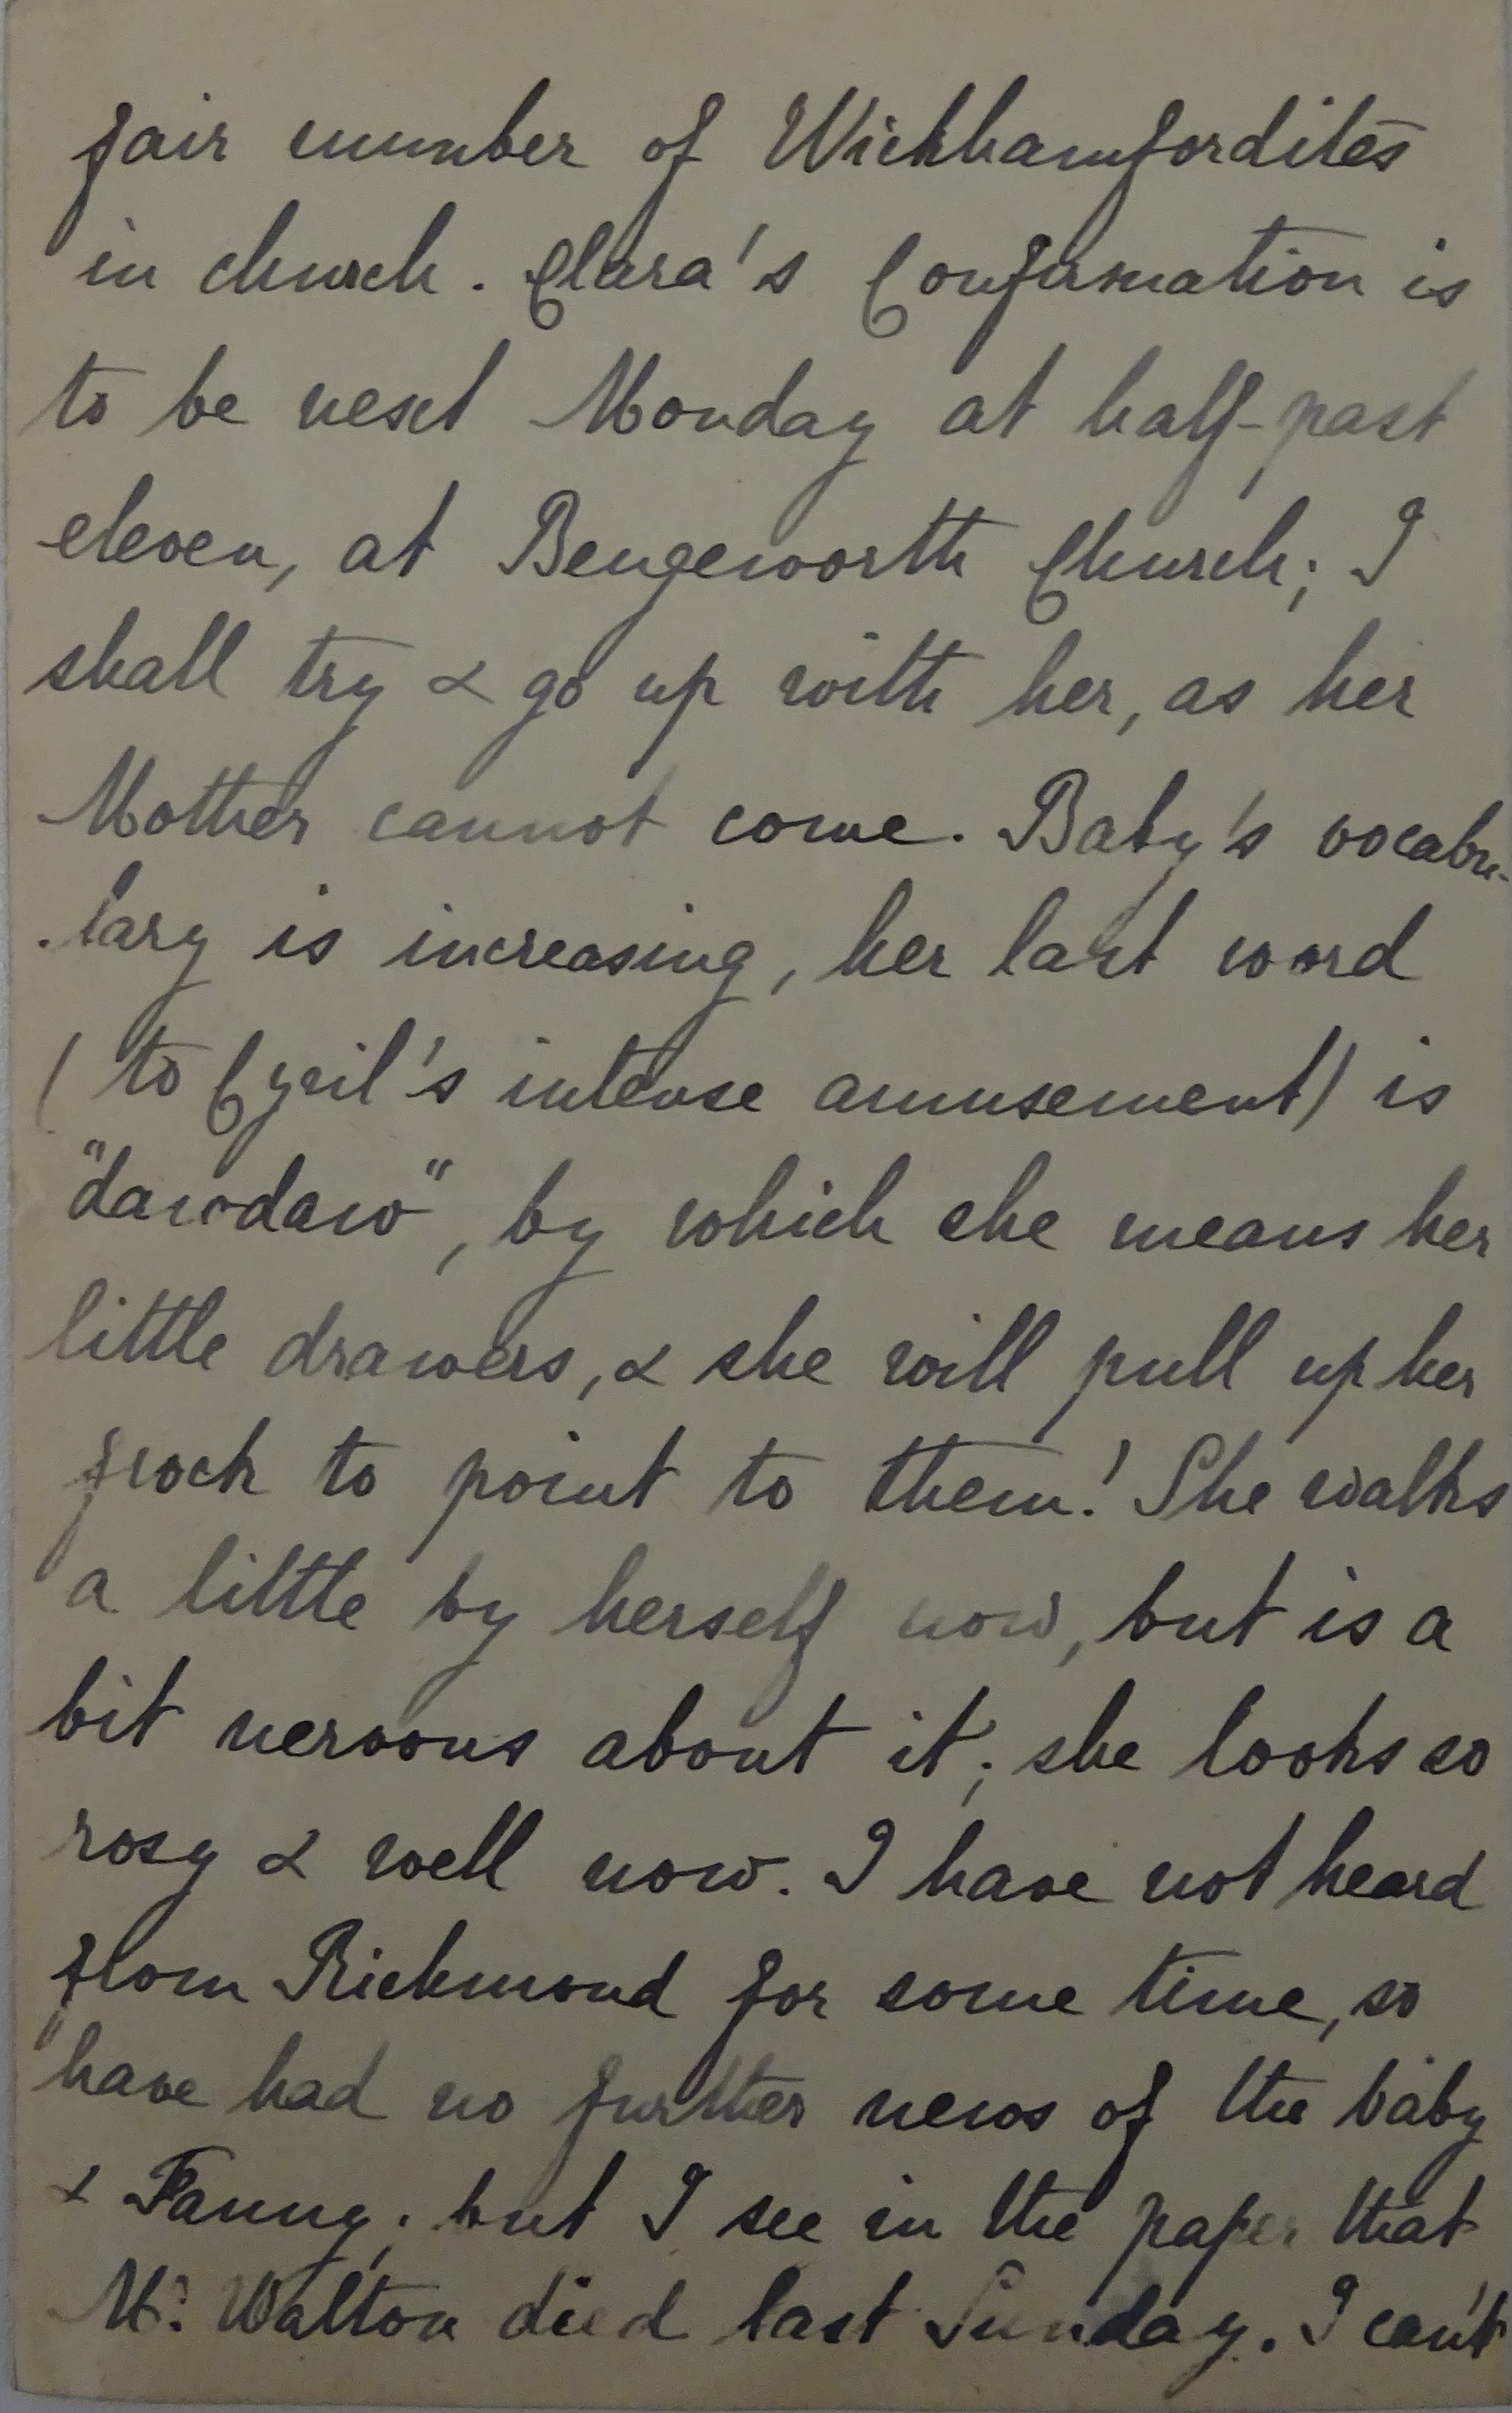 fair number of Wickhamfordites
in church. Clara's Confirmation is
to be next Monday at half-past
eleven, at Bengeworth Church; I
shall try & go up with her, as her
Mother cannot come. Baby's vocabu-
-lary is increasing, her last word
(to Cyril's intense amusement) is
"dawdaw", by which she means her
little drawers, & she will pull up her
frock to point to them! She walks
a little by herself now, but is a
bit nervous about it; she looks so
rosy & well now. I have not heard
from Richmond for some time, so
have had no further news of the baby
& Fanny; but I see in the paper that
Mr. Walton died last Sunday. I can't